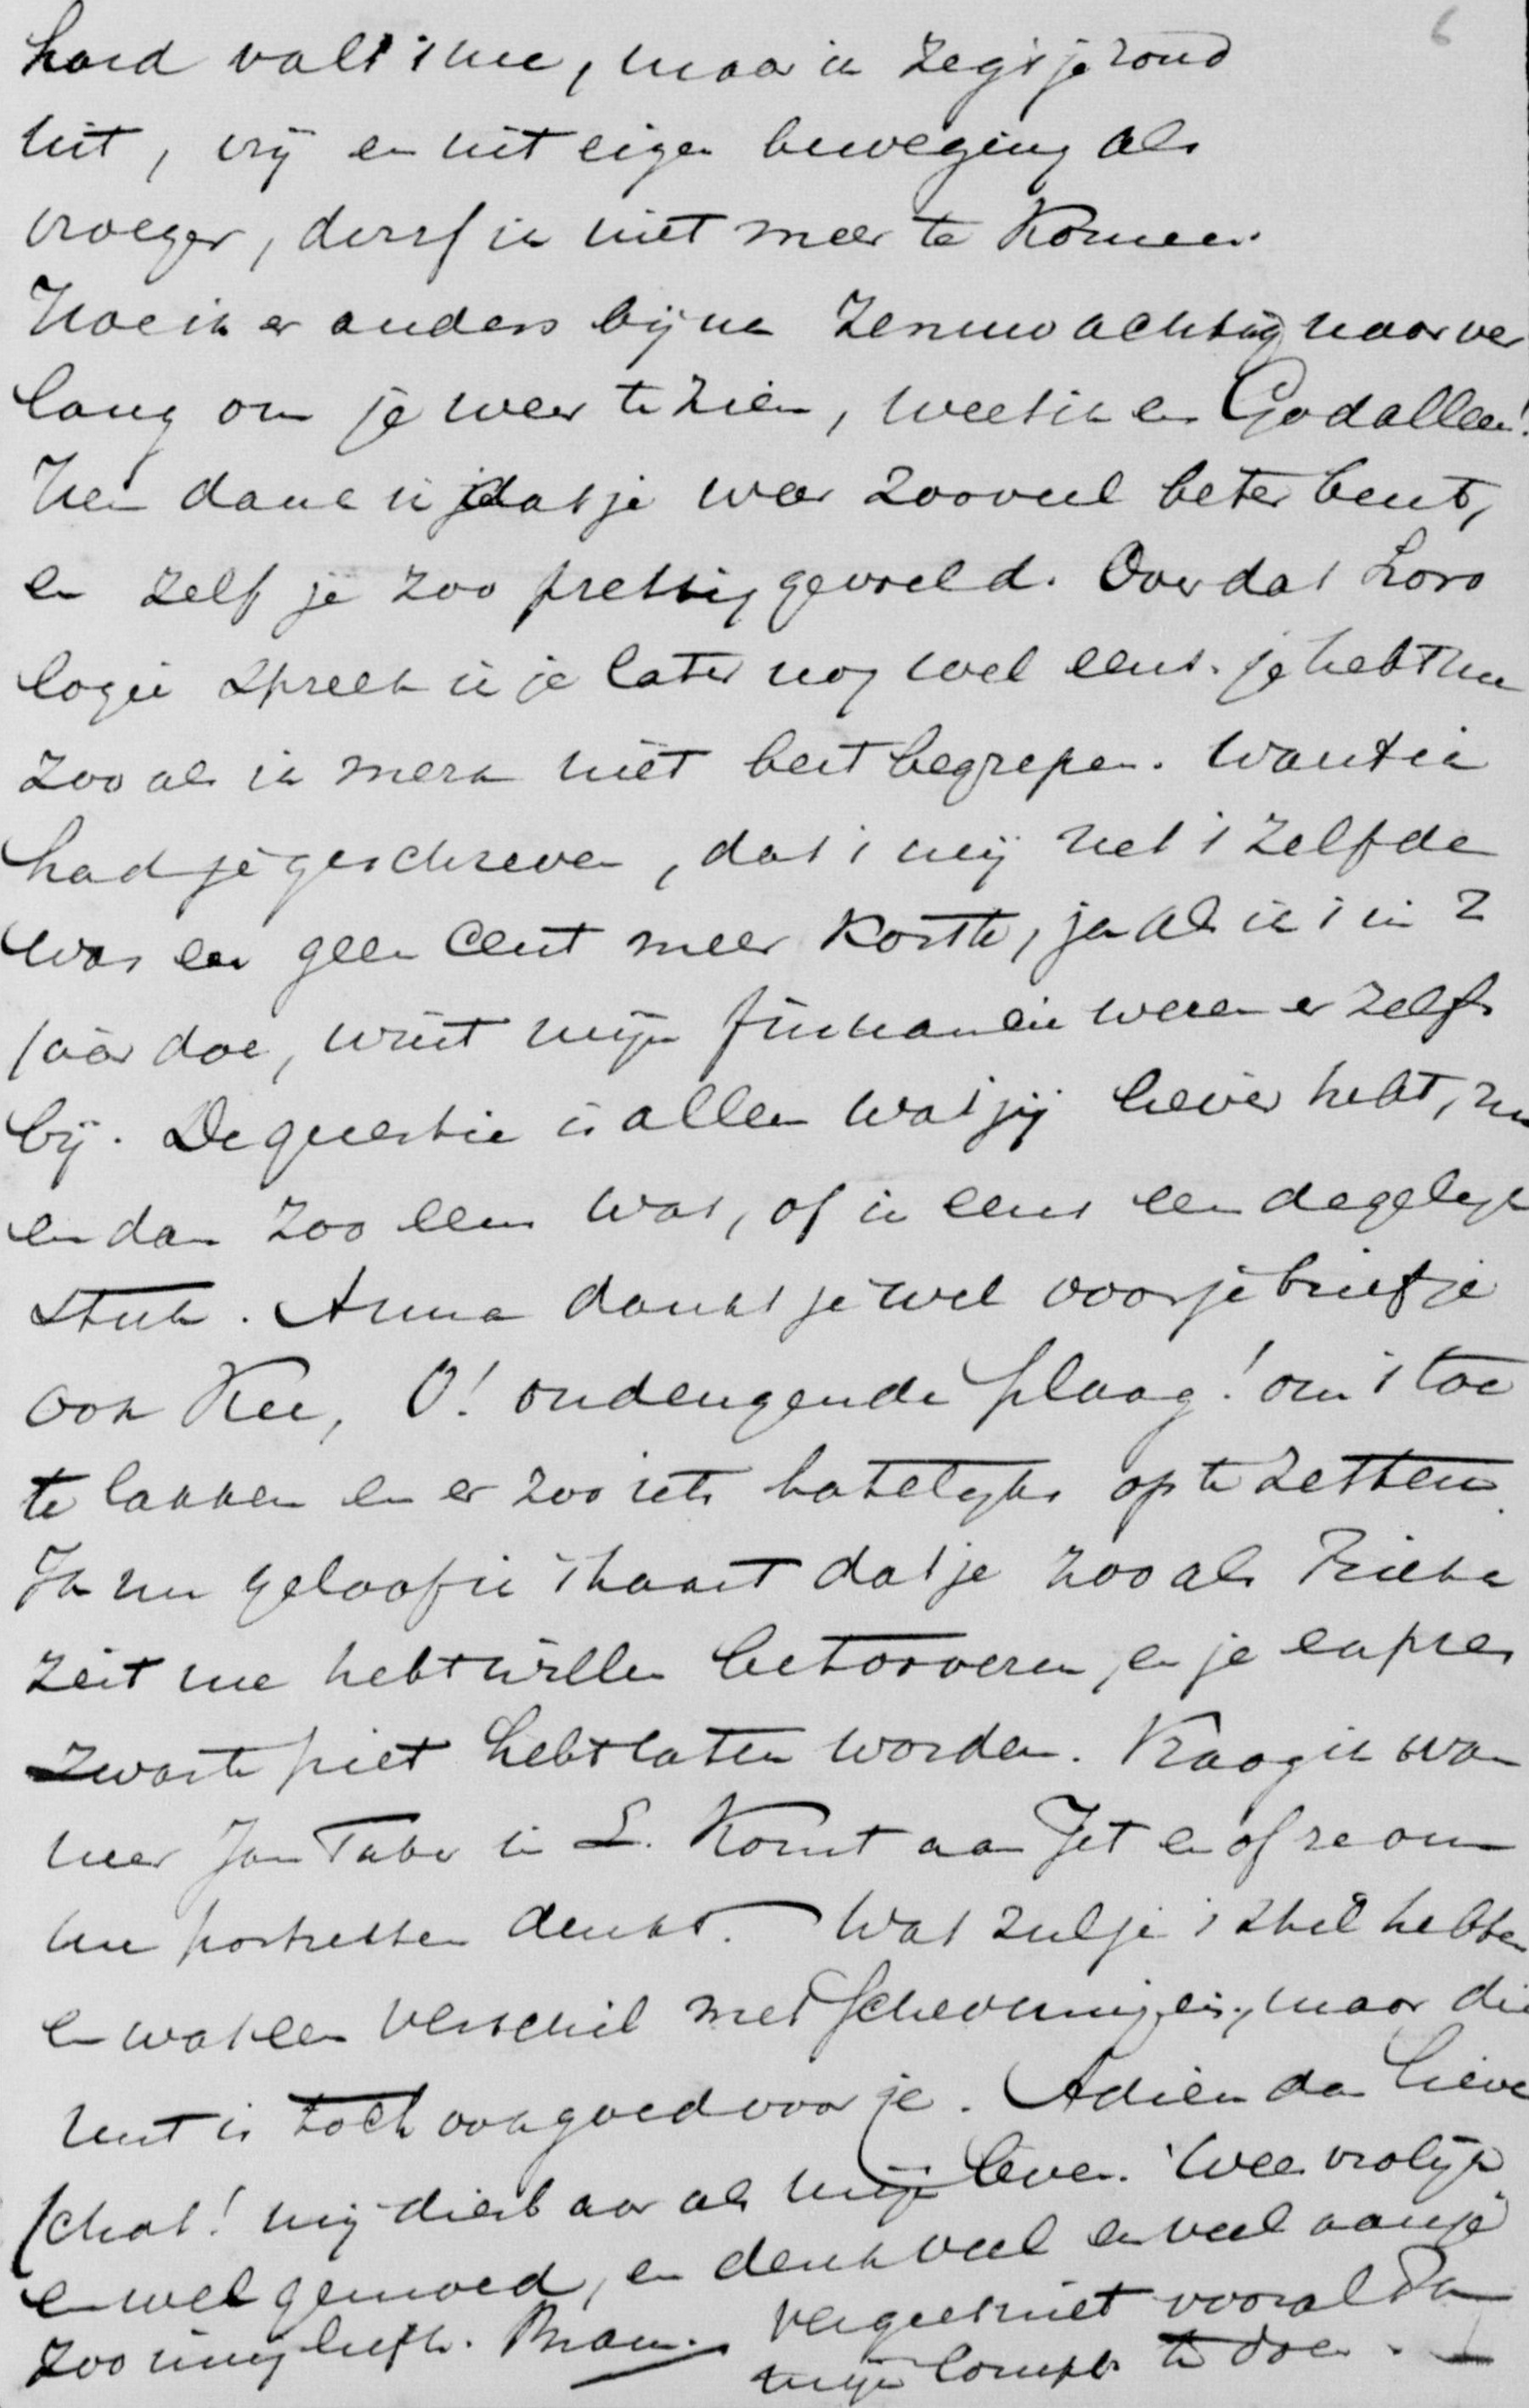 6
hard valt 't me, maar ik zeg 't je rond
uit, vrij en uit eigen beweging als
vroeger, durf ik niet meer te komen.
Hoe ik er anders bijna zenuwachtig naar ver
lang om je weer te zien, weet ik en God alleen!
Hem dank ik dat je weer zooveel beter bent,
en zelf je zoo prettig gevoeld. Over dat horo
logie spreek ik je later nog wel eens. je hebt me
zoo als ik merk niet best begrepen. Want ik
had je geschreven, dat 't mij het 't zelfde
was en geen cent meer kostte, ja als ik 't in 2
jaar doe, wint mijn finhancie weren er zelfs
bij. De questie is alleen wat jij liever hebt, nu
en dan zoo eens wat, of in eens een degelijk
stuk. Anna dankt je wel voor je briefje
ook Kee, O! ondeugende plaag! om 't toe
te lakken en er zoo iets hatelyks op te zetten.
Ja nu geloof ik 't haast dat je zoo als Rieka
zeit me hebt willen betooveren, en je expres
zwarte piet hebt laten worden. Vraag ik wan
neer Jan Tabe in L. komt aan Jet en of ze om
me portretten denkt. Wat zul je 't stil hebben
en wat een verschil met Scheveningen, maar die
rust is toch ook goed voor je. Adieu dan lieve
schat! mij dierbaar als mijn leven. Wees vrolijk
en welgemoed, en denk veel en veel aan je
zoo innig liefh. Bram. Vergeet niet vooral Pa
mijn compl. te doen.